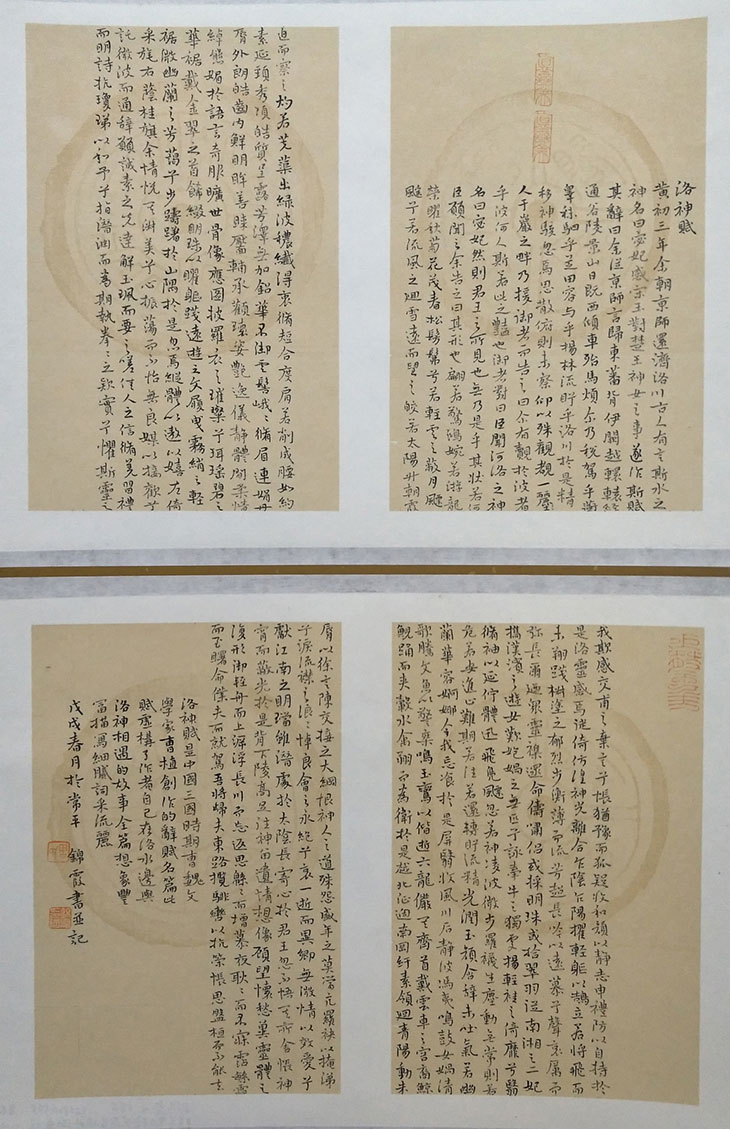 洛神賦
黃初三年余朝京師還濟洛川古人有言斯水之
神名曰宓妃感宋玉對楚王神女之事遂作斯賦
其辭曰余從京師言歸東蕃背伊闕越轘轅經
通谷陵景山日既西傾車殆馬煩尒乃税駕乎蘅
皋秣駟乎芝田容与乎楊林流眄乎洛川於是精
移神駭忽焉思散俯則未察仰以殊觀覩一麗
人于巖之畔乃援御者而告之曰尒有覿於波者
乎波何人斯若此之豔也御者對曰臣聞河洛之神
名曰宓妃然則君王之所見也無乃是乎其狀若何
臣願聞之余告之曰其形也翩若驚鴻婉若游龍
榮曜秋菊花茂春松髣髴兮若輕雲之蔽月飄
飖兮若流風之迴雪遠而望之皎若太陽升朝霞
迫而察之灼若芙蕖出綠波穠纖得衷脩短合度肩若削成腰如約
素延頸秀項皓質呈露芳澤無加鉛華不御雲髻峨峨脩眉連娟丹
脣外朗皓齒內鮮明眸善睞靨輔承顴瓌姿艷逸儀靜體閑柔情
綽態媚於語言奇服曠世骨像應圖披羅衣之璀粲兮珥瑤碧之
華裾戴金翠之首飾綴明珠以曜軀踐遠遊之文履曳霧綃之輕
裾微幽蘭之芳藹兮步躊躇於山隅於是忽焉縱體以遨以嬉左倚
采旄右蔭桂旗余情悅其淑美兮心振蕩而不怡無良媒以接歡兮
託微波而通辭願誠素之先達解玉珮而要之嗟佳人之信脩羌習禮
而明詩抗瓊珶以和予兮指潛淵而為期執拳拳之款實兮懼斯靈之
我欺感交甫之棄言兮悵猶豫而狐疑收和顏以靜志申禮防以自持於
是洛靈感焉徙倚彷徨神光離合乍陰乍陽擢輕軀以鶴立若將飛而
未翔踐椒塗之郁烈步蘅薄而流芳超長吟以遠慕兮聲哀厲而
弥長爾迺眾靈雜遝命儔嘯侶或採明珠或拾翠羽從南湘之二妃
攜漢濱之遊女歎匏媧之無匹兮詠牽牛之獨處揚輕袿之倚靡兮翳
脩袖以延佇體迅飛鳧飄忽若神凌波微步羅襪生塵動無常則若
危若安進止難期若往若還轉眄流精光潤玉顏含辭未吐氣若幽
蘭華容婀娜令我忘飡於是屏翳收風川后靜波馮夷鳴鼓女媧清
歌騰文魚以警椉鳴玉鸞以偕逝六龍儼其齊首戴雲車之容裔鯨
鯢踊而夾轂水禽翔而為衛於是越北沚過南岡紆素領迴青陽動朱
脣以徐言陳交接之大綱恨神人之道殊怨盛年之莫當亢羅袂以掩涕
兮淚流襟之浪浪悼良會之永絕兮哀一逝而異鄉無微情以效愛兮
獻江南之明璫雖潛處於太陰長寄心於君王忽不悟其所舍悵神
霄而蔽光於是背下陵高足往神留遺情想像顧望懷愁冀靈體之
復形御輕舟而上遡浮長川而忘返思緜緜而增慕夜耿耿而不寐霑繁霜
而至曙命僕夫而就駕吾將歸夫東路攬騑轡以抗策悵盤桓而不能去
洛神賦是中國三國時期曹魏文
學家曹植創作的辭賦名篇此
賦虛構了作者自己在洛水邊與
洛神相遇的故事全篇想象豐
富描寫細膩詞采流麗
戊戌春月於常平
錦霞書並記